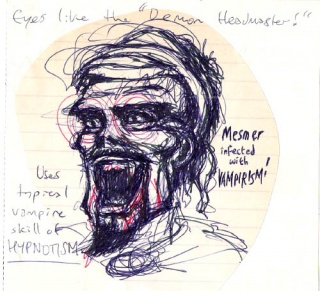 Eyes like the "Demon Headmaster!"
Mesmer
infected
with
VAMPIRISM!
Uses
typical
vampire
skill of
HYPNOTISM